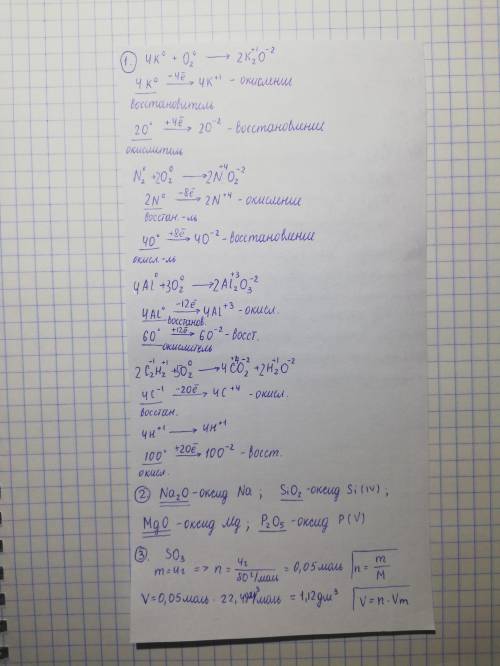 1. 4K⁰ + O₂⁰ ⟶ 2K₂⁺¹O⁻²
4K⁰ –4ē⟶ 4K⁺¹ - окисление
восстановитель
2O⁰ +4ē⟶ 2O⁻² - восстановление
окислитель
N₂⁰ + 2O₂⁰ ⟶ 2N⁺⁴O₂⁻²
2N⁰ –8ē⟶ 2N⁺⁴ - окисление
восстан.-ль
4O⁰ +8ē⟶ 4O⁻² - восстановление
окисл.-ль
4Al⁰ + 3O₂⁰ ⟶ 2Al₂⁺³O₃⁻²
4Al⁰ –12ē⟶ 4Al⁺³ - окисл.
восстанов.
6O⁰ +12ē⟶ 6O⁻² - восст.
окислитель
2C₂⁻¹H₂⁺¹ + 5O₂⁰ ⟶ 4C⁺⁴O₂⁻² + 2H₂⁺¹O⁻²
4C⁻¹ –20ē⟶ 4C⁺⁴ - окисл.
восстан.
4H⁺¹ ⟶ 4H⁺¹
10O⁰ +20ē⟶ 10O⁻² - восст.
окисл.
2. Na₂O - оксид Na ; SiO₂ - оксид Si(IV) ;
MgO - оксид Mg ; P₂O₅ - оксид P(V)
3. SO₃
m = 4г => n = 4г / 80 г/моль = 0,05 моль n = m/M
V = 0,05 моль · 22,4 дм³/моль = 1,12 дм³ V = n · Vm